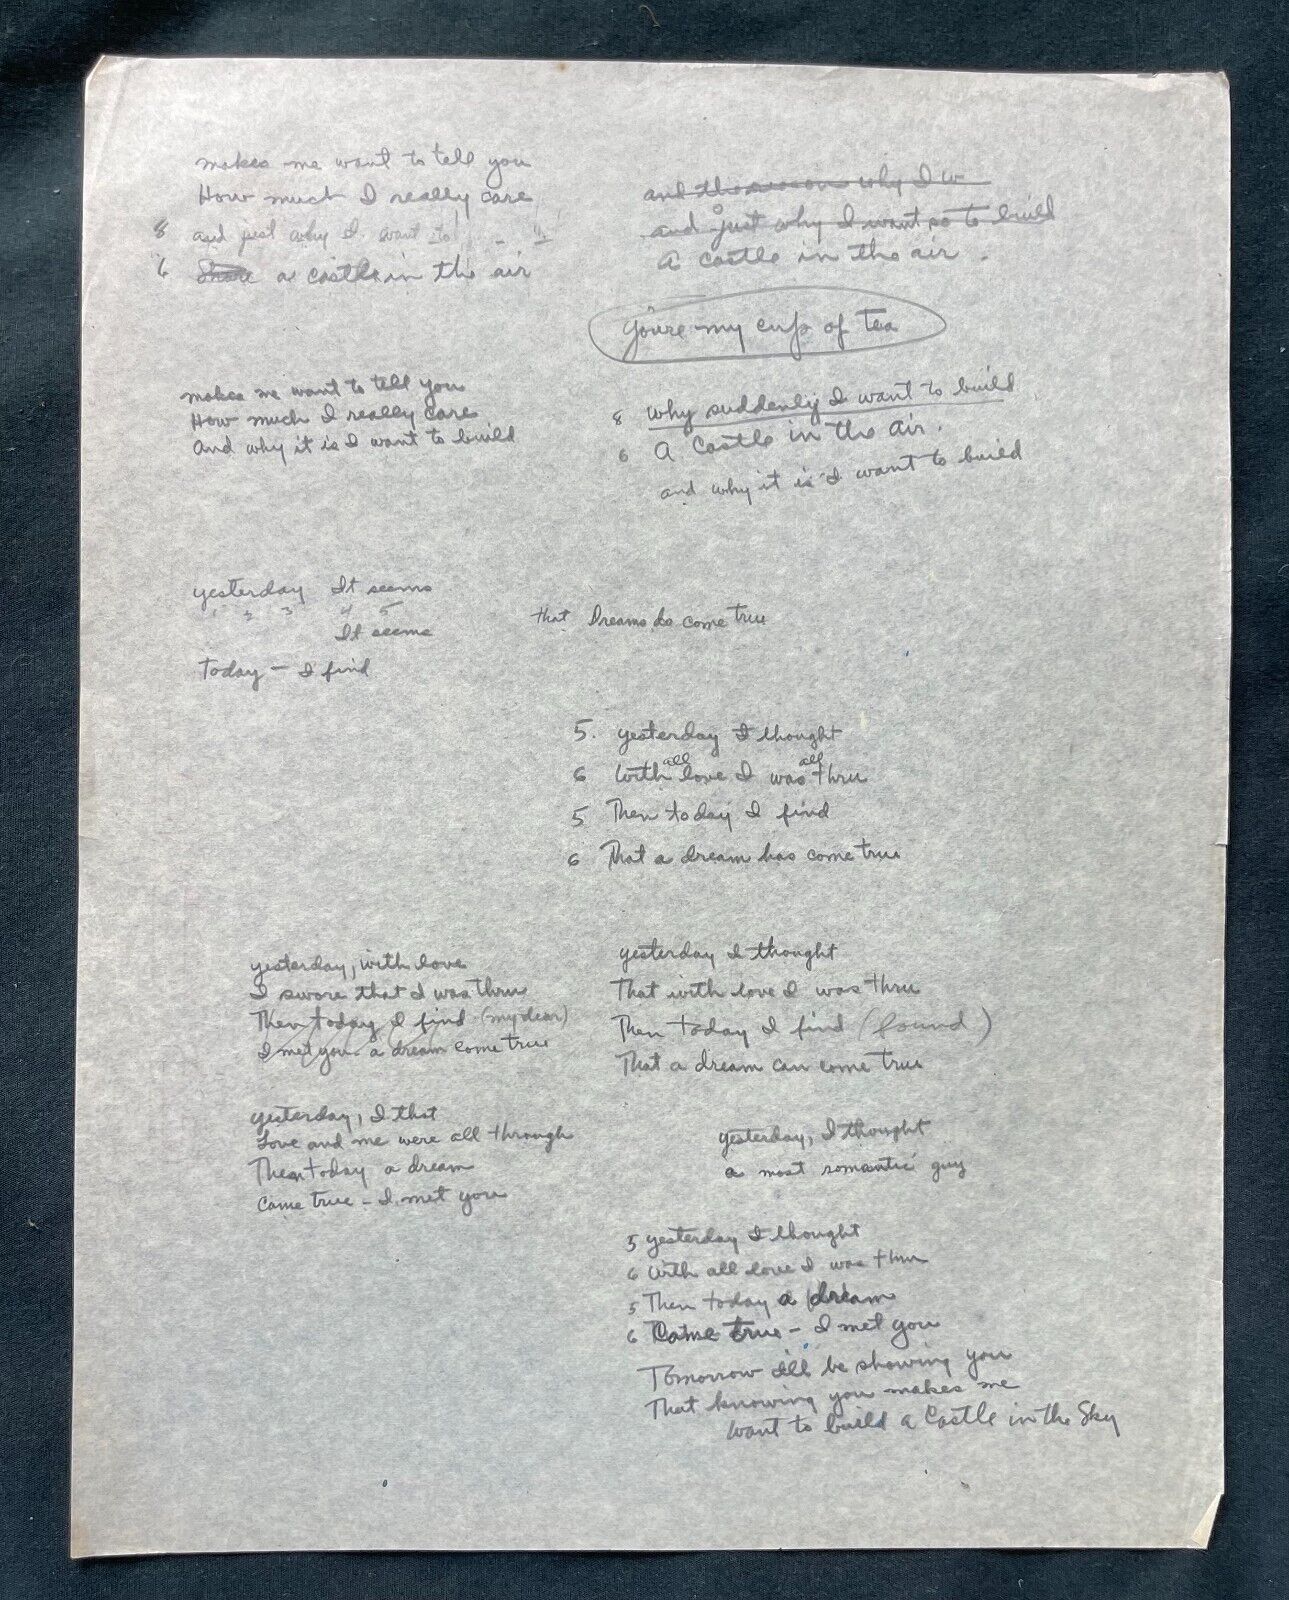 makes me want to tell you
How much I really care
8 and just why I want to
6 Share a castle in the air
and the reason why I w
and just why I want so to build
A castle in the air.
You're my cup of tea
makes me want to tell you
How much I really care
And why it is I want to build
8 Why suddenly I want to build
6 A Castle in the air.
and why it is I want to build
yesterday It seems
1 2 3 4 5
It seems
that Dreams do come true
today - I find
5. yesterday I thought
all all
6 With love I was thru
5 Then today I find
6 That a dream has come true
yesterday, with love
I swore that I was thru
Then today I find (my dear)
I met you a dream come true
yesterday I thought
That with love I was thru
Then today I find (found)
That a dream can come true
yesterday, I that
Love and me were all through
Then today a dream
Came true - I met you
yesterday, I thought
a most romantic guy
5 yesterday I thought
6 With all love I was thru
5 Then today a dream
6 Came true - I met you
Tomorrow I'll be showing you
That knowing you makes me
Want to build a Castle in the Sky